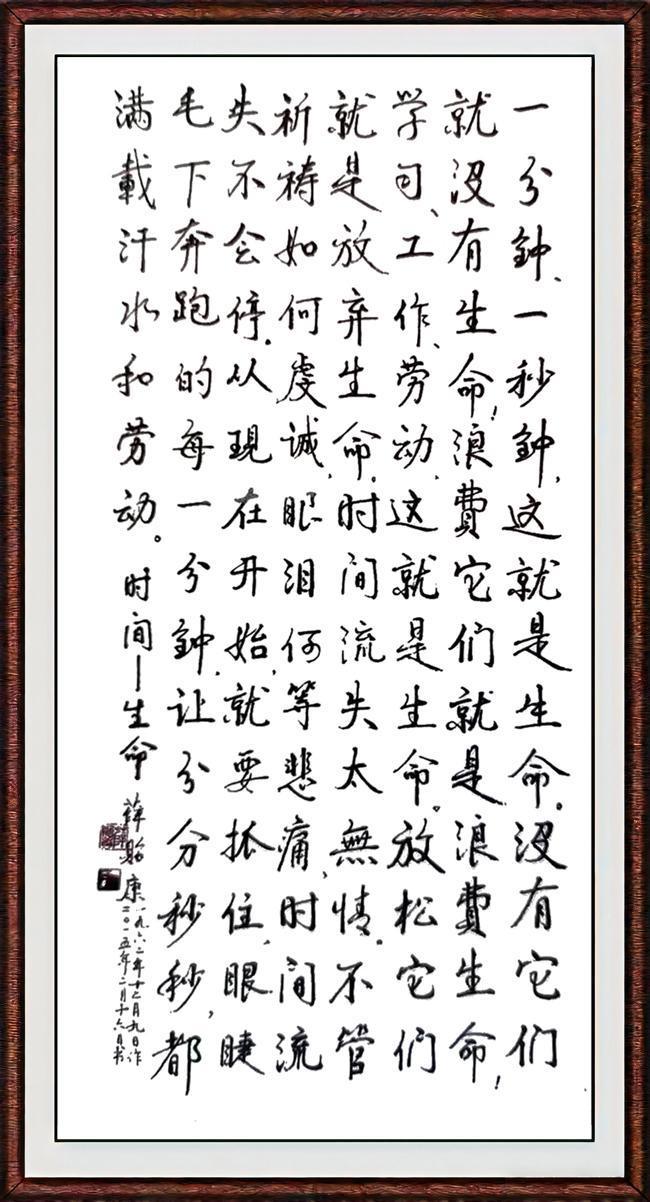 一分鐘、一秒鐘，这就是生命。没有它们
就没有生命！浪費它们就是浪費生命！
学习、工作、劳动，这就是生命。放松它们
就是放弃生命。时间流失太無情。不管
祈祷如何虔诚，眼泪何等悲痛，时间流
失不会停。从現在开始，就要抓住，眼睫
毛下奔跑的每一分鐘，让分分秒秒，都
满載汗水和劳动。时间—生命 薛贻康
一九六二年十二月九日作
二〇一五年二月十六日书